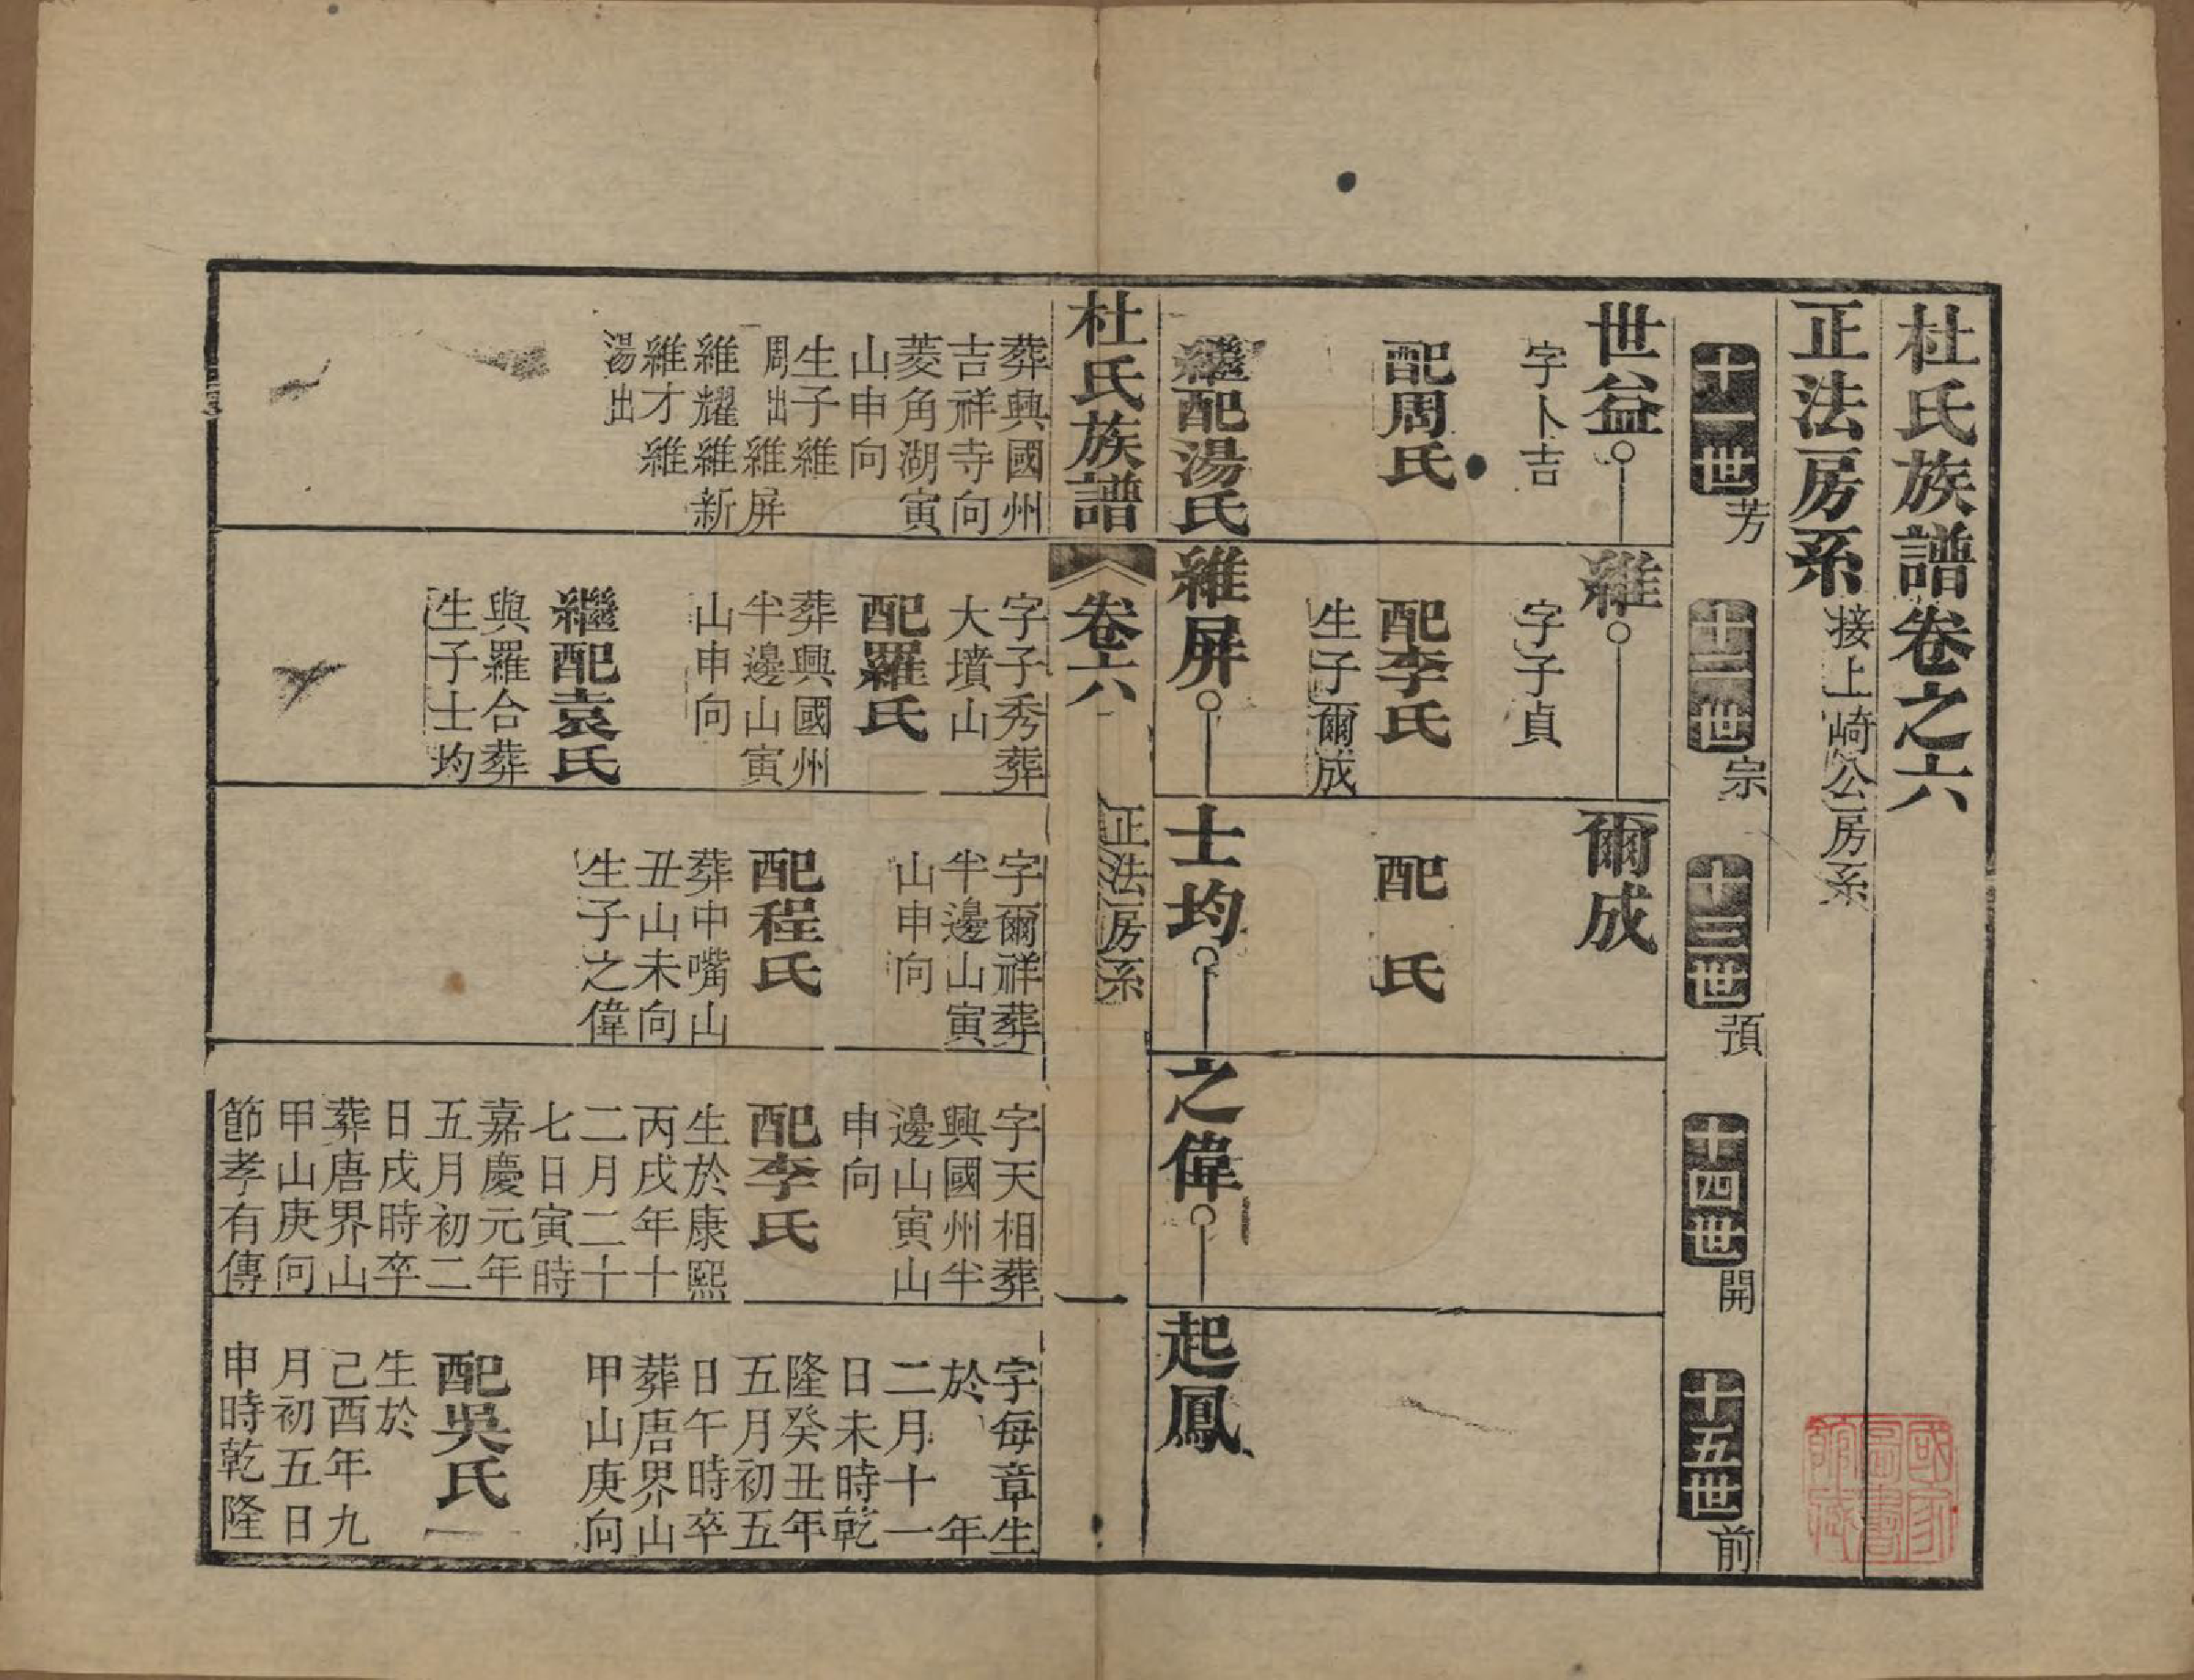 杜氏族譜卷之六
正法房系
接上崎公房系
十一世芳
十二世宗
十三世預
十四世開
十五世前
世益
字卜吉
配周氏
繼配湯氏
維
字子貞
配李氏
生子爾成
維屏
爾成
配　氏
士均
之偉
起鳳
杜氏族譜
卷六
正法房系
一
葬興國州
吉祥寺向
菱角湖寅
山申向
生子維
周出維屏
維耀維新
維才維
湯出
字子秀葬
大墳山
配羅氏
葬興國州
半邊山寅
山申向
繼配袁氏
與羅合葬
生子士均
字爾祥葬
半邊山寅
山申向
配程氏
葬中嘴山
丑山未向
生子之偉
字天相葬
興國州半
邊山寅山
申向
配李氏
生於康熙
丙戌年十
二月二十
七日寅時
嘉慶元年
五月初二
日戌時卒
葬唐界山
甲山庚向
節孝有傳
字每章生
於　年
二月十一
日未時乾
隆癸丑年
五月初五
日午時卒
葬唐界山
甲山庚向
配吳氏
生於
己酉年九
月初五日
申時乾隆
國家
圖書
館藏